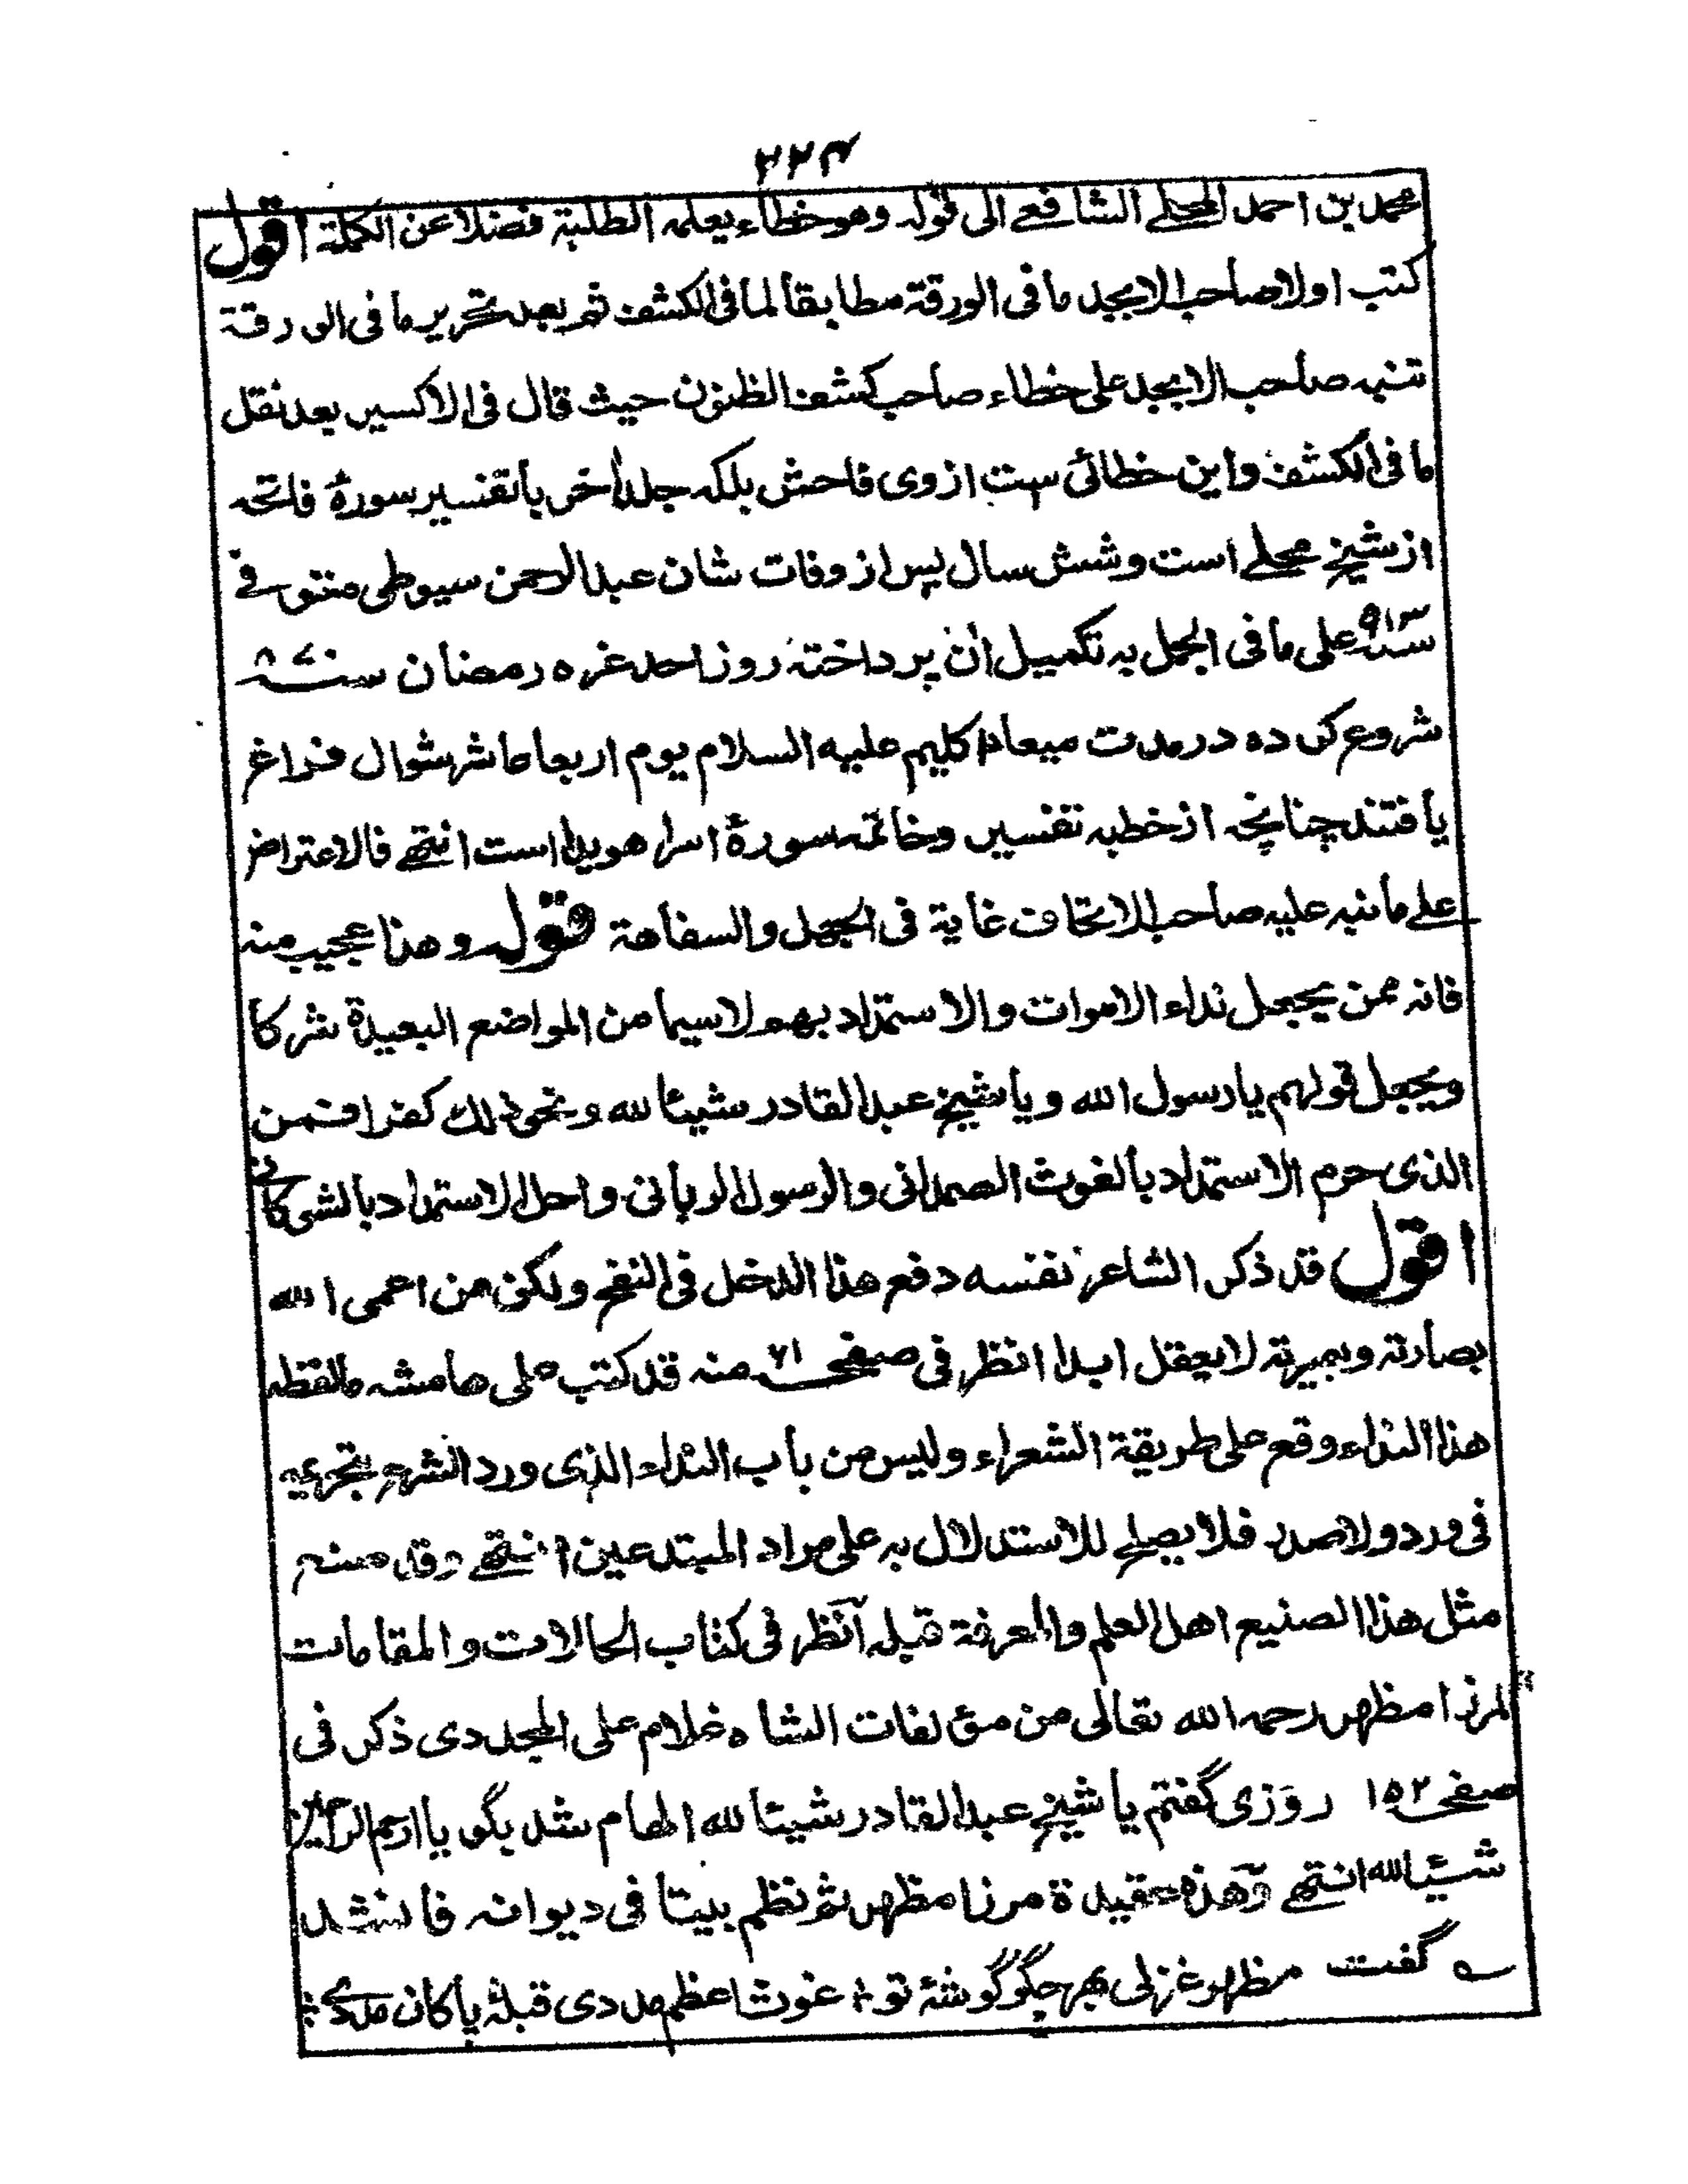 ٢٢٤
محمد بن احمد المحلے الشافعے الی قولہ وھو خطاء یعلمہ الطلبۃ فضلا عن الکملۃ اقول
کتب اولا صاحب الابجد ما فی الورقۃ مطابقا لما فی الکشف ثم بعد تحریر ما فی الورقۃ
تنبہ صاحب الابجد علی خطاء صاحب کشف الظنون حیث قال فی الاکسیر بعد نقل
ما فی الکشف واین خطائی ست ازوی فاحش بلکہ جلد آخر با تفسیر سورۂ فاتحہ
از شیخ محلے است وشش سال پس از وفات شان عبد الرحمن سیوطی متوفے
سنہ ٩١٣ علی ما فی الجمل بہ تکمیل آن پرداختہ روز احد غرہ رمضان سنہ ٨٧٠
شروع کردہ در مدت میعاد کلیم علیہ السلام یوم اربعا عاشر شوال فراغ
یافتند چنانچہ از خطبہ تفسیر وخاتمہ سورۂ اسرا ھویدا است انتھے فالاعتراض
علے ما نبہ علیہ صاحب الاتحاف غایۃ فی الجھل والسفاھۃ قولہ وھذا عجیب منہ
فانہ ممن یجعل نداء الاموات والاستمداد بھم لاسیما من المواضع البعیدۃ شرکا
ویجعل قولہم یا رسول اللہ ویا شیخ عبد القادر شیئا للہ ونحو ذلک کفرا فمن
الذی حرم الاستمداد بالغوث الصمدانی والرسول الربانی واحل الاستمداد بالشوکانی
اقول قد ذکر الشاعر نفسہ دفع ھذا الدخل فی النفح ولکن من اعمی اللہ
بصارتہ وبصیرتہ لا یعقل ابدا انظر فی صفحہ ٧١ منہ قد کتب علی ھامشہ ما لفظہ
ھذا النداء وقع علی طریقۃ الشعراء ولیس من باب النداء الذی ورد الشرع بتحریمہ
فی ورد ولا صدر فلا یصلح للاستدلال بہ علی مراد المبتدعین انتھے وقد صنع
مثل ھذا الصنیع اھل العلم والمعرفۃ قبلہ انظر فی کتاب الحالات والمقامات
لمرزا مظھر رحمہ اللہ تعالی من مؤلفات الشاہ غلام علی المجددی ذکر فی
صفحہ ١٥٢ روزی گفتم یا شیخ عبد القادر شیئا للہ الھام شد بگو یا ارحم الراحمین
شیئا للہ انتھے وھذہ عقیدۃ مرزا مظھر ثم نظم بیتا فی دیوانہ فانشد
؎ گفت مظھر غزلی بھر جگر گوشۂ تو ؛ غوث اعظم مددی قبلۂ پاکان مددے ؛